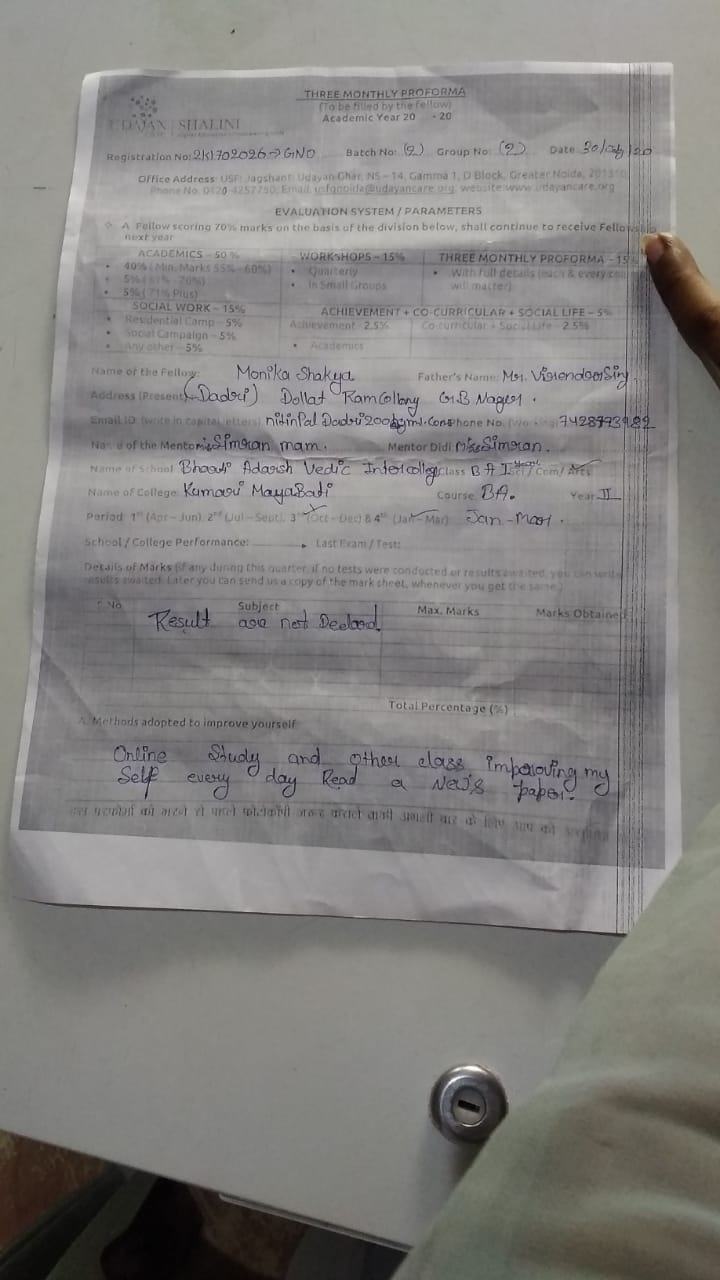 THREE MONTHLY PROFORMA
(To be filled by the fellow)
Academic Year 20 - 20
UDAYAN SHALINI
Registration No: 2K1702026→GNO Batch No: (2) Group No: (2) Date 30/ /20
Office Address: USF: Jagshanti Udayan Ghar, NS – 14, Gamma 1, D Block, Greater Noida, 201310
Phone No. 0120-4257750; Email: infonoida@udayancare.org; website:www.udayancare.org
EVALUATION SYSTEM / PARAMETERS
A Fellow scoring 70% marks on the basis of the division below, shall continue to receive Fellowship
next year
ACADEMICS – 50 % WORKSHOPS – 15% THREE MONTHLY PROFORMA – 15%
• 40% (Min. Marks 55% - 60%) • Quarterly • With full details (each & every
• 5% (61% - 70%) • In Small Groups will matter)
• 5% (71% Plus)
SOCIAL WORK – 15% ACHIEVEMENT + CO-CURRICULAR + SOCIAL LIFE – 5%
• Residential Camp – 5% Achievement - 2.5% Co-curricular + Social Life – 2.5%
• Social Campaign – 5% • Academics
• Any other – 5%
Name of the Fellow: Monika Shakya Father's Name: Mr. Virendoor Sing
Address (Present) (Dadri) Dollat Ram Collony G.B Nager.
Email ID (write in capital letters) Phone No. 7428993982
Name of the Mentor: Miss Simran mam. Mentor Didi Miss Simran.
Name of School Bharti Adarsh Vedic Intercollege Class B A I / Com/ Arts
Name of College: Kumari MayaBati Course BA. Year II
Period: 1st (Apr – Jun), 2nd (Jul – Sept), 3rd (Oct – Dec) & 4th (Jan – Mar) Jan - Mar.
School / College Performance: Last Exam / Test:
Details of Marks (If any during this quarter, if no tests were conducted or results awaited, you can write
results awaited. Later you can send us a copy of the mark sheet, whenever you get the same.)
S. No. Subject Max. Marks Marks Obtained
Result are not Declard
Total Percentage (%)
A. Methods adopted to improve yourself
Online Study and other class improving my
Self every day Read a New's paper.
इस प्रफोर्मा को भरने से पहले फोटोकॉपी जरूर कराले ताकी अगली बार के लिए आप को